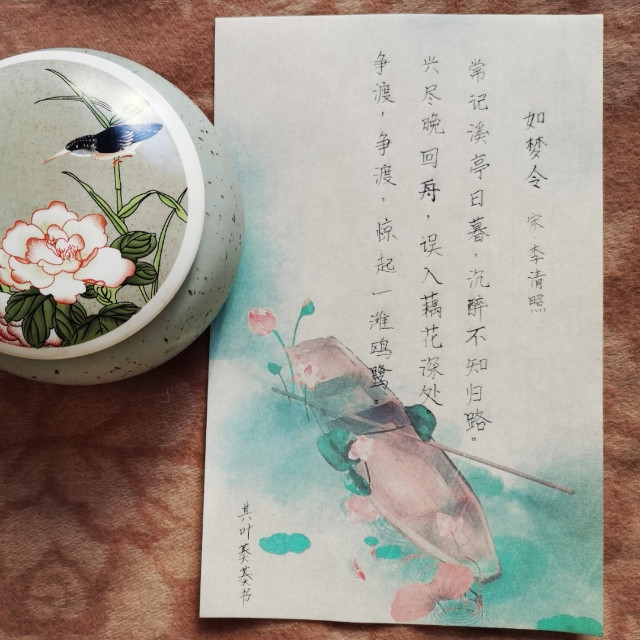 如梦令 宋 李清照
常记溪亭日暮，沉醉不知归路。
兴尽晚回舟，误入藕花深处
争渡，争渡，惊起一滩鸥鹭。
其叶蓁蓁书